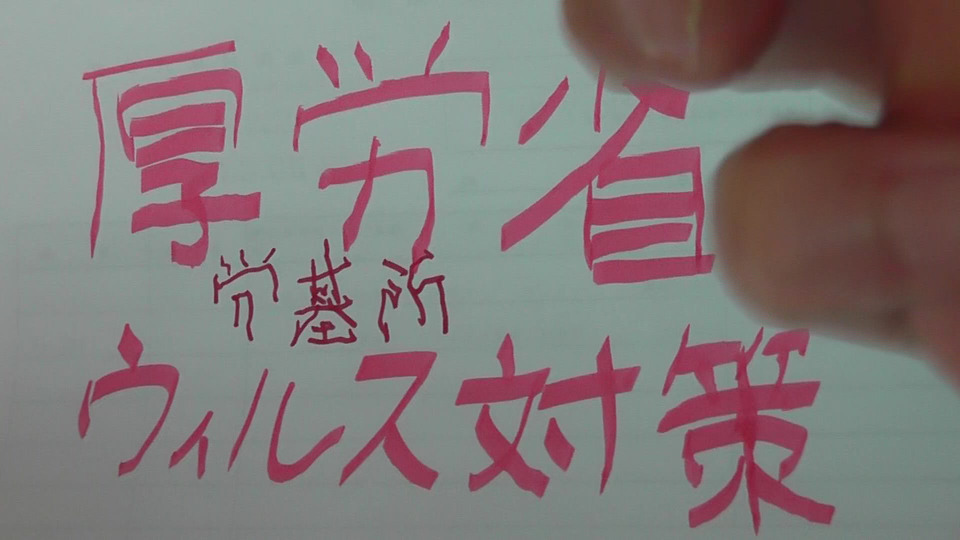 厚労省
労基所
ウィルス対策